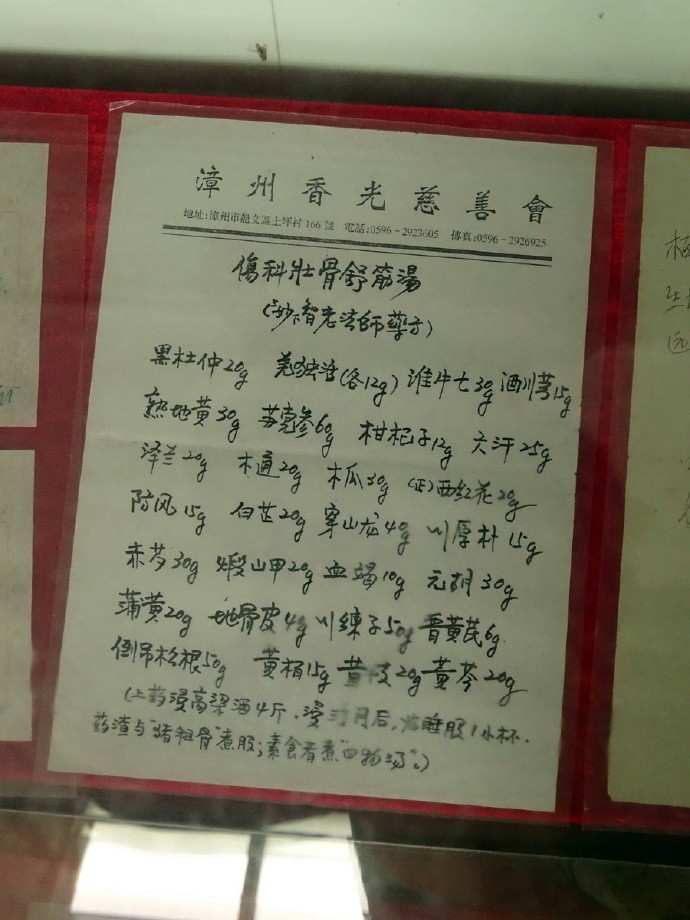 漳州香光慈善會
地址:漳州市龍文區土坪村166號 電話:0596-2923605 傳真:0596-2926925
傷科壯骨舒筋湯
(妙智老法師藥方)
黑杜仲20g 羌独活(各12g) 淮牛七30g 酒川芎15g
熟地黄30g 60g 柑杞子12g 六汗25g
泽兰20g 木通20g 木瓜30g (正)西红花20g
防风15g 白芷20g 穿山龙40g 川厚朴15g
赤芍30g 煅山甲20g 血竭10g 元胡30g
蒲黄20g 地骨皮4g 川練子50g 晋黄芪6g
倒吊松根50g 黄栢15g 20g 黄芩20g
(上药浸高梁酒4斤.浸 月后, 睡服1小杯.
药渣与"猪粗骨"煮服;素食者煮"四物汤"。)